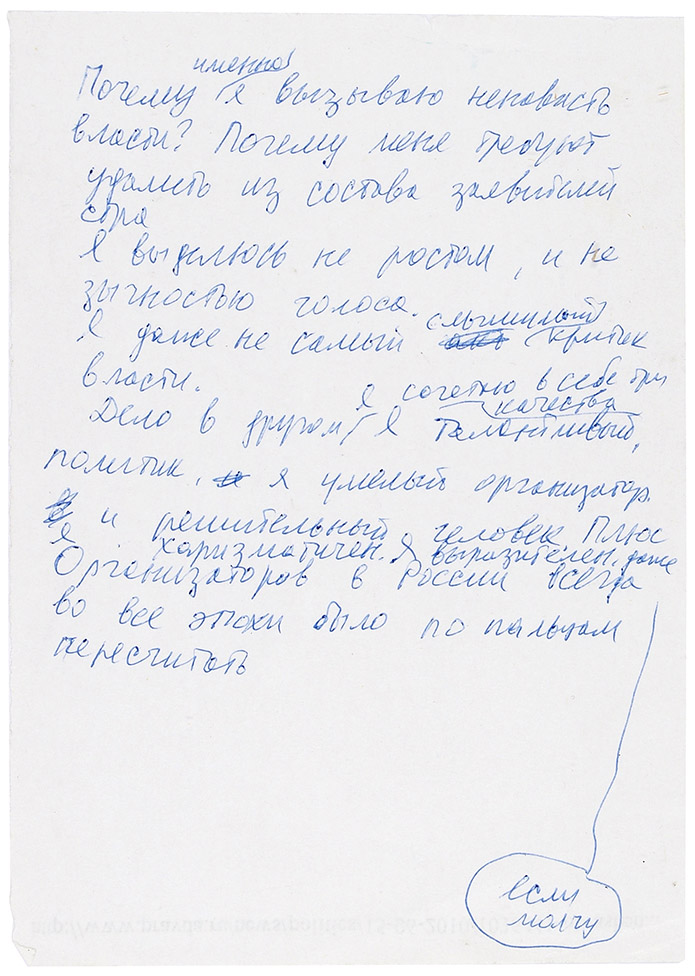 именно
Почему я вызываю ненависть
власти? Почему меня требуют
удалить из состава заявителей
стра
Я выделюсь не ростом, и не
зычностью голоса.
слышимый
Я даже не самый критик
власти.
Я сочетаю в себе три
качества
Дело в другом, Я талантливый,
политик, я умелый организатор.
и решительный человек Плюс
Я харизматичен. Я выразителен, даже
Организаторов в России всегда
во все эпохи было по пальцам
пересчитать
если
молчу